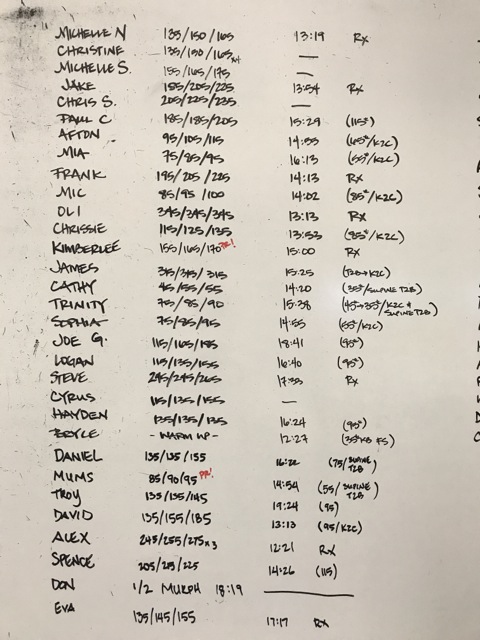 MICHELLE N 135/150/165 13:19 Rx
CHRISTINE 135/150/165x4 —
MICHELLE S. 155/165/175 —
JAKE 185/205/225 13:54 Rx
CHRIS S. 205/225/235 —
PAUL C 185/185/205 15:29 (115#)
AFTON 95/105/115 14:55 (65#/K2C)
MIA 75/85/95 16:13 (55#/K2C)
FRANK 195/205/225 14:13 Rx
MIC 85/95/100 14:02 (85#/K2C)
OLI 345/345/345 13:13 Rx
CHRISSIE 115/125/135 13:53 (85#/K2C)
KIMBERLEE 155/165/170 PR! 15:00 Rx
JAMES 315/315/315 15:25 (T2B→K2C)
CATHY 45/55/55 14:20 (35#/SUPINE T2B)
TRINITY 75/85/90 15:38 (45→35#/K2C + SUPINE T2B)
SOPHIA 75/85/95 14:55 (55#/K2C)
JOE G. 115/165/185 18:41 (95#)
LOGAN 115/135/155 16:40 (95#)
STEVE 245/245/265 17:35 Rx
CYRUS 115/135/155 —
HAYDEN 135/135/135 16:24 (95#)
BRYLE - WARM UP - 12:27 (35#KB FS)
DANIEL 135/135/155 16:22 (75/SUPINE T2B)
MUMS 85/90/95 PR! 14:54 (55/SUPINE T2B)
TROY 135/135/145 19:24 (95)
DAVID 135/155/185 13:13 (95/K2C)
ALEX 245/255/275x3 12:21 Rx
SPENCE 205/215/225 14:26 (115)
DON 1/2 MURPH 18:19 —
EVA 135/145/155 17:17 Rx